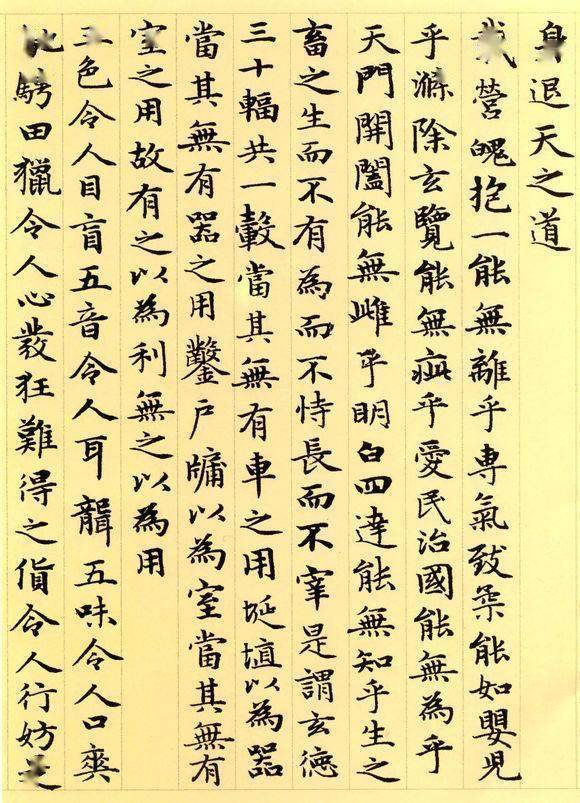 身退天之道
營魄抱一能無離乎專氣致柔能如嬰児
乎滌除玄覽能無疵乎愛民治國能無為乎
天門開闔能無雌乎明白四達能無知乎生之
畜之生而不有為而不恃長而不宰是謂玄德
三十輻共一轂當其無有車之用埏埴以為器
當其無有器之用鑿戶牖以為室當其無有
室之用故有之以為利無之以為用
五色令人目盲五音令人耳聾五味令人口爽
騁田獵令人心發狂難得之貨令人行妨是